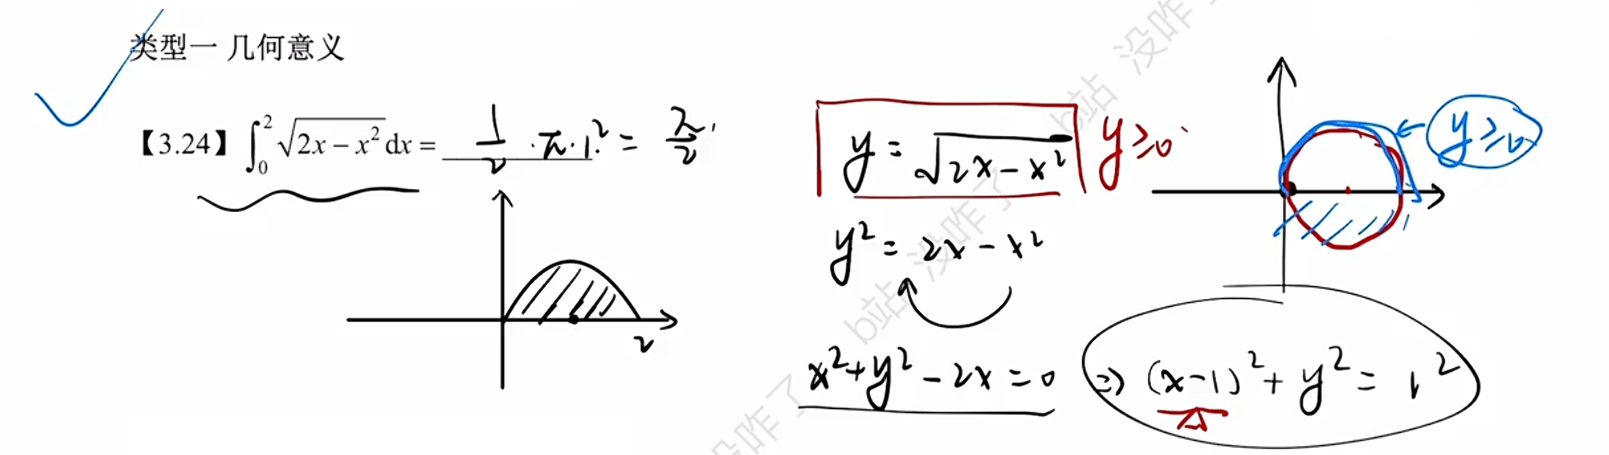 类型一 几何意义
【3.24】∫₀² √(2x − x²) dx = 1/2 · π · 1² = π/2
2
y = √(2x − x²) y ≥ 0
y² = 2x − x²
x² + y² − 2x = 0 ⇒ (x−1)² + y² = 1²
y ≥ 0
b站 没咋了
b站 没咋了
没咋了